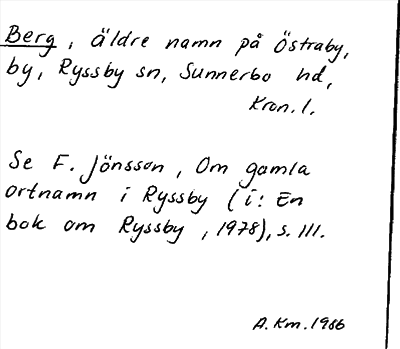 Berg, äldre namn på Östraby,
by, Ryssby sn, Sunnerbo hd,
Kron. l.
Se F. Jönsson, Om gamla
ortnamn i Ryssby (i: En
bok om Ryssby, 1978), s. 111.
A. Km. 1986